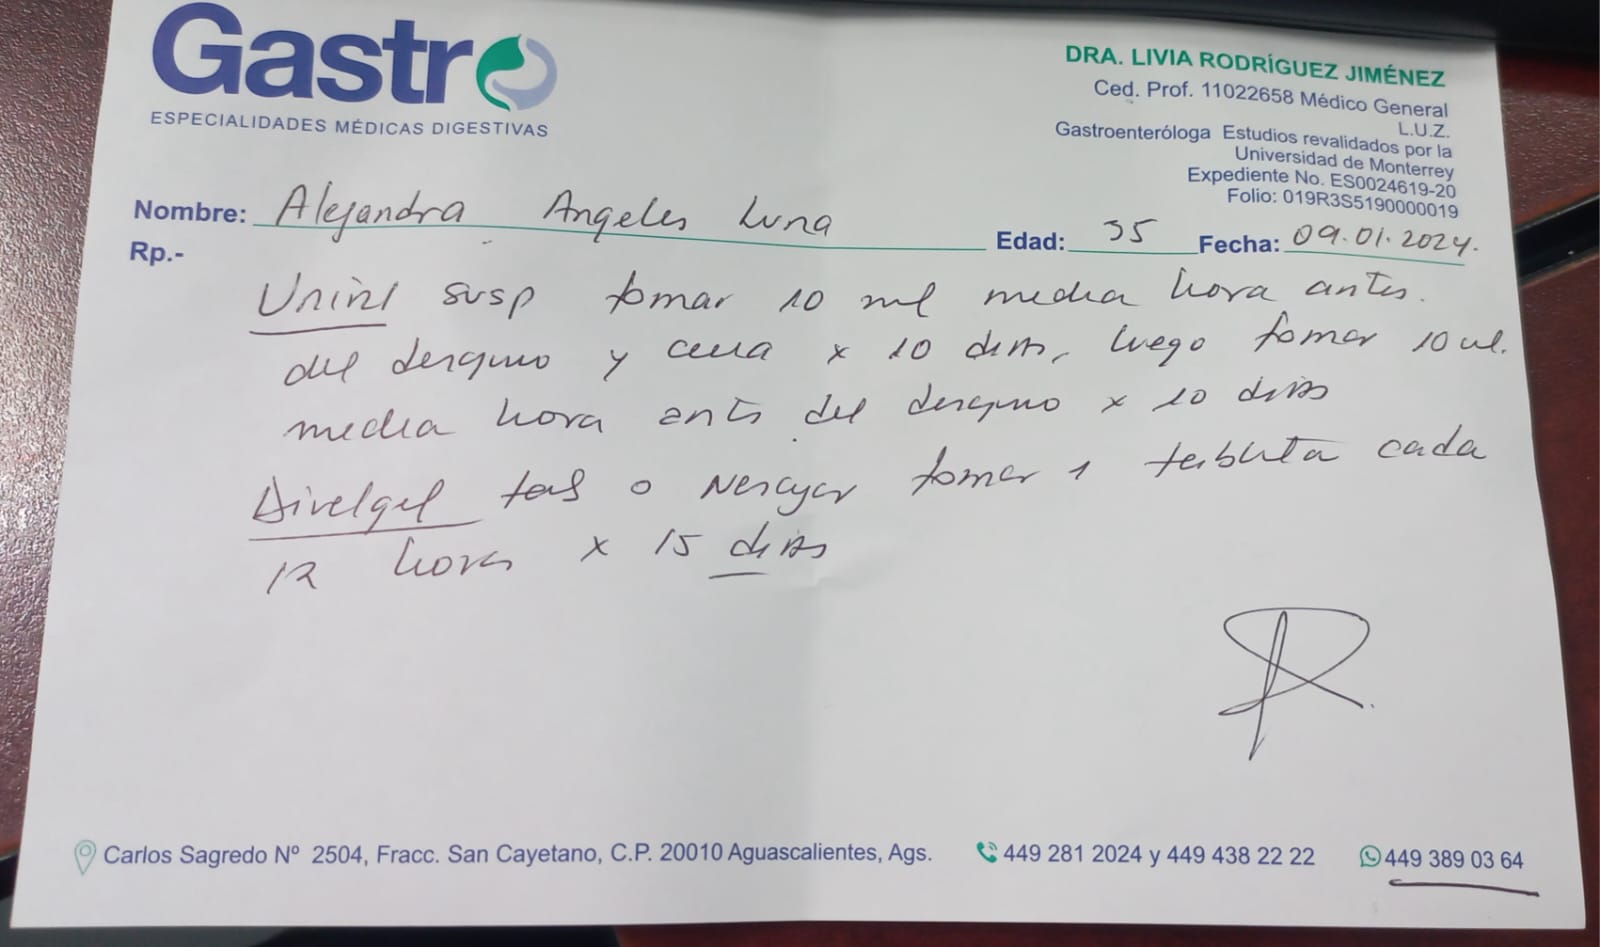 Gastro
ESPECIALIDADES MÉDICAS DIGESTIVAS
DRA. LIVIA RODRÍGUEZ JIMÉNEZ
Ced. Prof. 11022658 Médico General
L.U.Z.
Gastroenteróloga Estudios revalidados por la
Universidad de Monterrey
Expediente No. ES0024619-20
Folio: 019R3S5190000019
Nombre: Alejandra Angeles Luna Edad: 35 Fecha: 09.01.2024.
Rp.-
susp tomar 10 ml media hora antes.
del y cena x 10 dias, luego tomar 10 ml.
media hora antes del x 10 dias
tab o tomar 1 tableta cada
12 horas x 15 dias
Carlos Sagredo Nº 2504, Fracc. San Cayetano, C.P. 20010 Aguascalientes, Ags. 449 281 2024 y 449 438 22 22 449 389 03 64